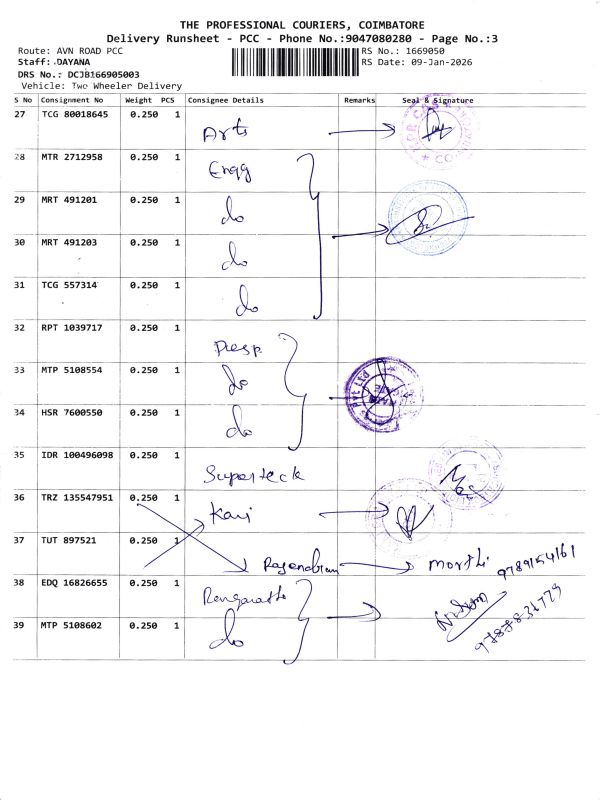 THE PROFESSIONAL COURIERS, COIMBATORE
Delivery Runsheet - PCC - Phone No.:9047080280 - Page No.:3
Route: AVN ROAD PCC
RS No.: 1669050
Staff: DAYANA
RS Date: 09-Jan-2026
DRS No.: DCJB166905003
Vehicle: Two Wheeler Delivery
S No Consignment No Weight PCS Consignee Details Remarks Seal & Signature
27 TCG 80018645 0.250 1 Arts
28 MTR 2712958 0.250 1 Engg
29 MRT 491201 0.250 1 do
30 MRT 491203 0.250 1 do
31 TCG 557314 0.250 1 do
32 RPT 1039717 0.250 1
33 MTP 5108554 0.250 1 do
Pvt Ltd
34 HSR 7600550 0.250 1 do
35 IDR 100496098 0.250 1 Superteck
36 TRZ 135547951 0.250 1
37 TUT 897521 0.250 1 9789154161
38 EDQ 16826655 0.250 1
39 MTP 5108602 0.250 1 do